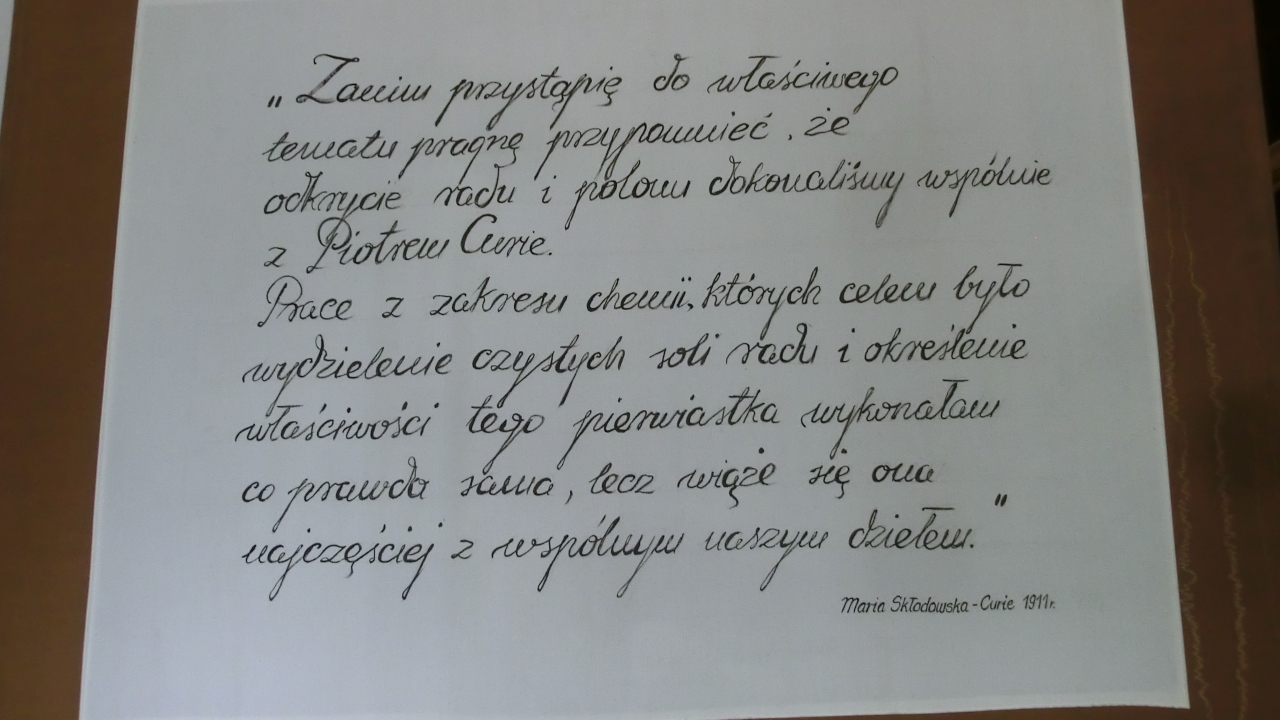 „Zanim przystąpię do właściwego
tematu pragnę przypomnieć, że
odkrycie radu i polonu dokonaliśmy wspólnie
z Piotrem Curie.
Prace z zakresu chemii, których celem było
wydzielenie czystych soli radu i określenie
właściwości tego pierwiastka wykonałam
co prawda sama, lecz wiąże się ona
najczęściej z wspólnym naszym dziełem."
Maria Skłodowska-Curie 1911r.